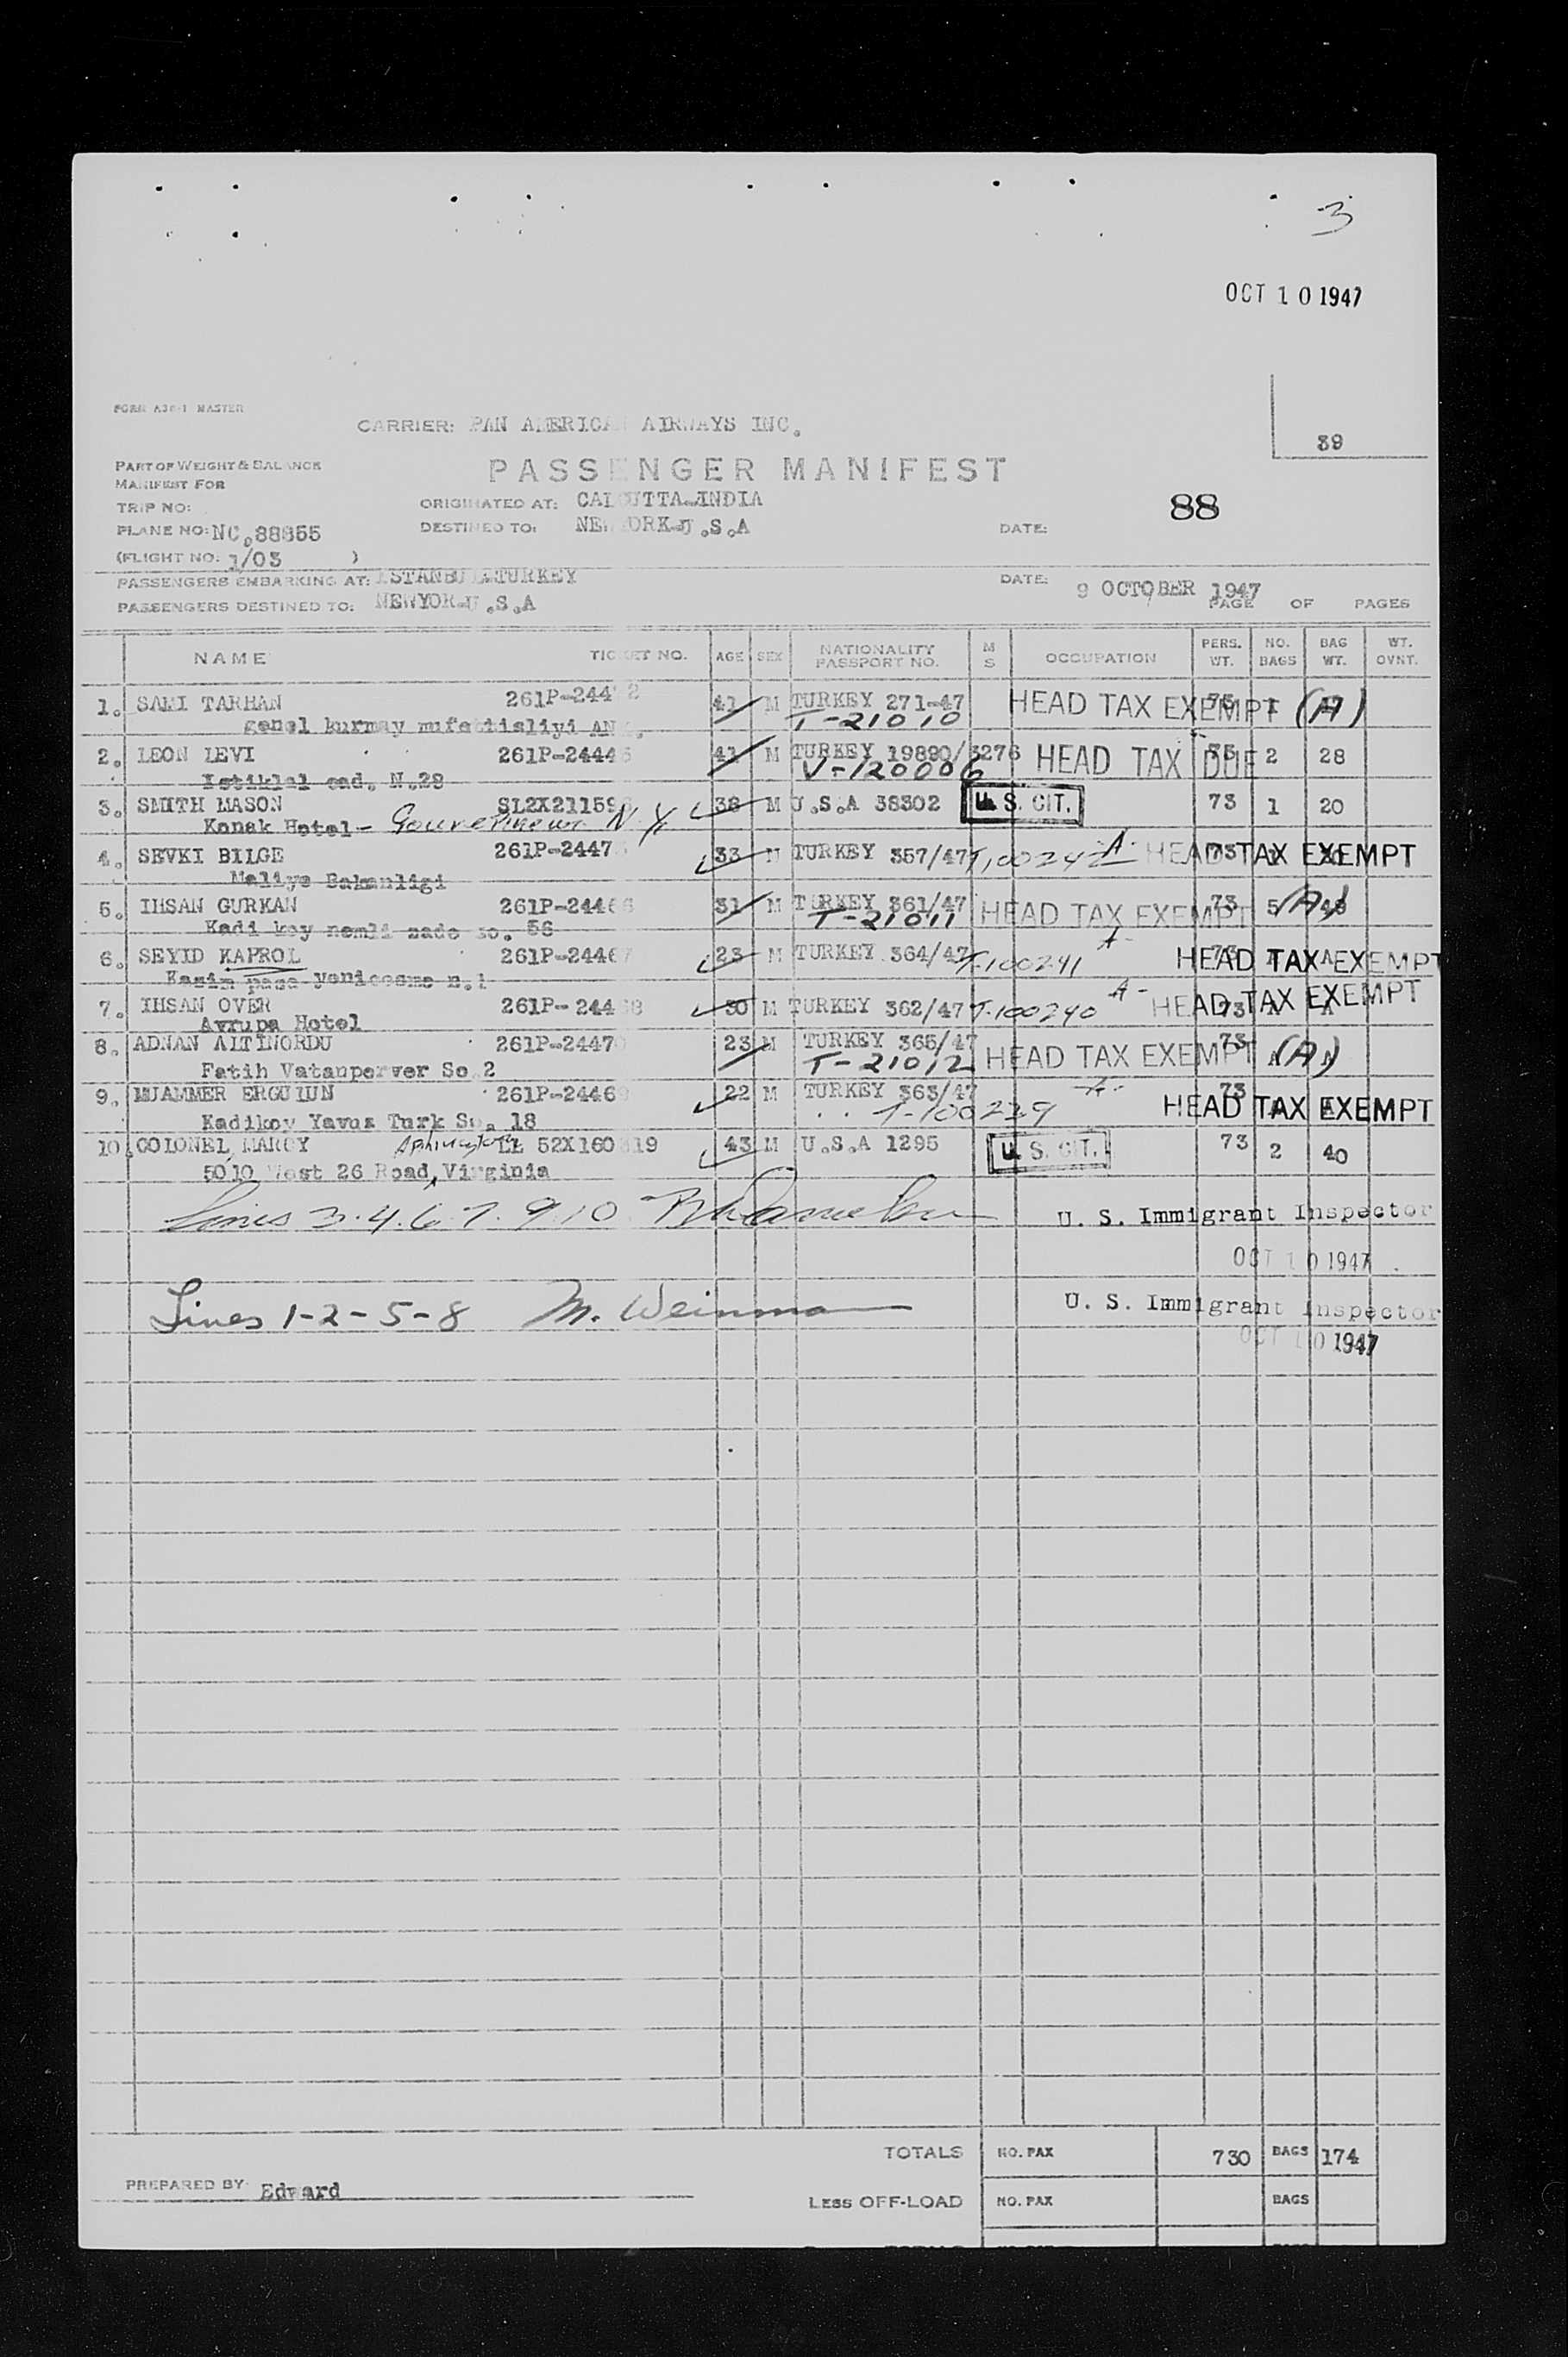 3
OCT 10 1947
FORM A30-1 MASTER
CARRIER: PAN AMERICAN AIRWAYS INC.
39
PART OF WEIGHT & BALANCE
MANIFEST FOR
PASSENGER MANIFEST
TRIP NO:
ORIGINATED AT: CALCUTTA-INDIA
88
PLANE NO: NC.88855
DESTINED TO: NEWYORK-U.S.A
DATE:
(FLIGHT NO: 1/03 )
PASSENGERS EMBARKING AT: ISTANBUL-TURKEY
DATE: 9 OCTOBER 1947
PASSENGERS DESTINED TO: NEWYOR-U.S.A
PAGE OF PAGES
NAME TICKET NO. AGE SEX NATIONALITY PASSPORT NO. M S OCCUPATION PERS. WT. NO. BAGS BAG WT. WT. OVNT.
1. SAMI TARHAN 261P-244 2 41 M TURKEY 271-47 HEAD TAX EXEMPT (A)
genel kurmay T-21010
2. LEON LEVI 261P-24445 41 M TURKEY 19890/3276 HEAD TAX DUE 2 28
Istiklal cad. N.29 V-120006
3. SMITH MASON SL2X21159 38 M U.S.A 38302 U.S. CIT. 73 1 20
Konak Hotel - Gouverneur N.Y.
4. SEVKI BILGE 261P-2447 33 M TURKEY 357/47 T,100242 A- 73 HEAD TAX EXEMPT
Maliye Bakanligi
5. IHSAN GURKAN 261P-24466 31 M TURKEY 361/47 HEAD TAX EXEMPT 73 5 (A)
Kadi koy nemli zade so. 56 T-21011
6. SEYID KAPROL 261P-24467 23 M TURKEY 364/47 T-100241 A- 73 HEAD TAX EXEMPT
Kasim pasa yenicesme n.1
7. IHSAN OVER 261P-24468 30 M TURKEY 362/47 T-100240 A- 73 HEAD TAX EXEMPT
Avrupa Hotel
8. ADNAN ALTINORDU 261P-24470 23 M TURKEY 365/47 HEAD TAX EXEMPT 73 (A)
Fatih Vatanperver So 2 T-21012
9. MUAMMER ERGULUN 261P-24469 22 M TURKEY 363/47 A- 73 HEAD TAX EXEMPT
Kadikoy Yavuz Turk So. 18 T-100239
10. COLONEL MARCY LE 52X160319 43 M U.S.A 1295 U.S. CIT. 73 2 40
5010 West 26 Road, Virginia
Lines 3.4.6.7.9.10 U. S. Immigrant Inspector
OCT 10 1947
Lines 1-2-5-8 M. Weinman U. S. Immigrant Inspector
OCT 10 1947
TOTALS NO. PAX 730 BAGS 174
PREPARED BY Edward
LESS OFF-LOAD NO. PAX BAGS